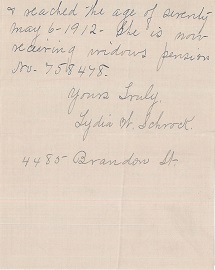 & reached the age of seventy
May 6-1912- She is now
receiving widows pension
No- 758478.
Yours Truly,
Lydia A. Schrock.
4485 Brandon St.